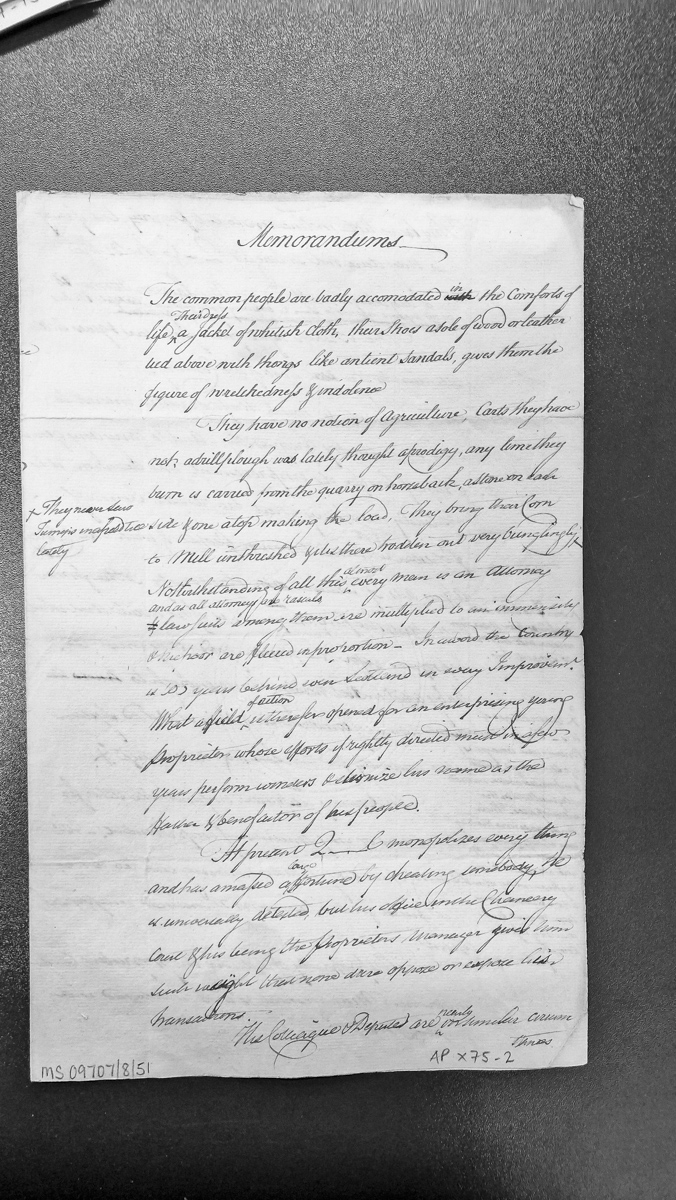 Memorandums
The common people are badly accomodated in with the Comforts of
Their dress
life, a Jacket of whitish Cloth, their Shoes a sole of wood or leather
tied above with thongs like antient Sandals, gives them the
figure of wretchedness & indolence
They have no notion of Agriculture, Carts they have
not; a drill plough was lately thought a prodigy, any lime they
burn is carried from the quarry on horseback, a stone on each
x They never saw
Turnips in a field till
lately
side & one atop making the load, They bring their Corn
to Mill unthreshed & it is there trodden out very bunglingly x
Notwithstanding of all this almost every man is an Attorney
and as all attorneys are rascals
law suits among them are multiplied to an immensity
& the poor are fleeced in proportion - In a word the Country
is 200 years behind even Scotland in every Improvemt.
What a field of action is therefor opened for an enterprising young
Proprietor whose efforts if rightly directed must in a few
years perform wonders & his name as the
Father & benefactor of his people.
At present L monopolizes every thing
and has amassed a large fortune by cheating he
is universally detested, but his office in the Chancery
Court & his being the Proprietors Manager gives him
such weight that none dare oppose or expose his
transactions.
The Colleague & Deputed are nearly in similar circum
stances
MS 09707/8/51
AP x75-2